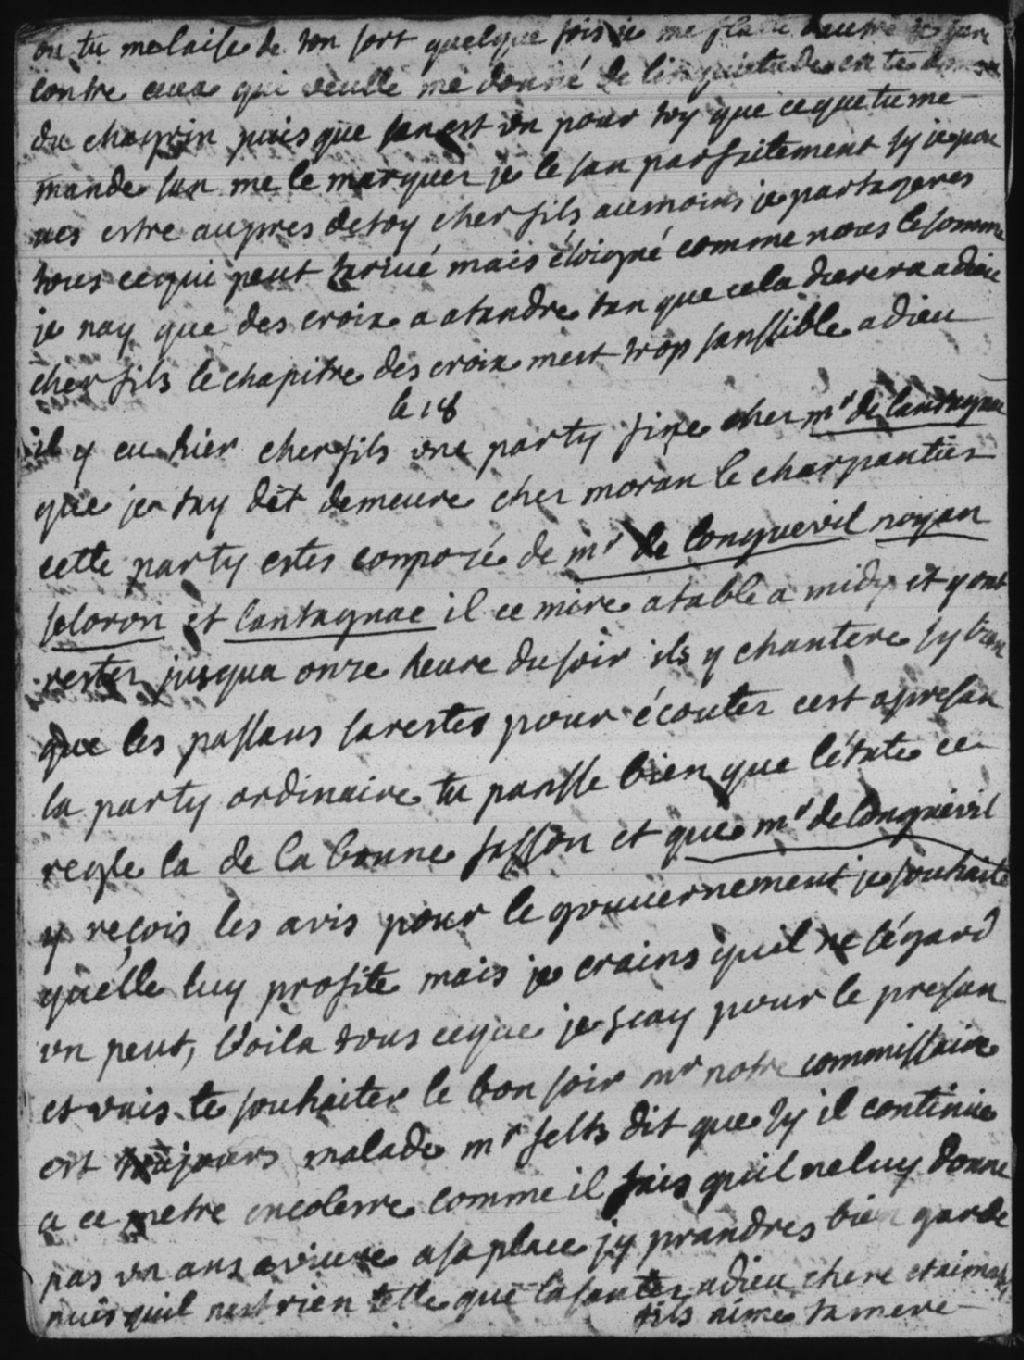 ou tu me laise de ton sort quelque fois je me flate
contre ceux qui veulle me donné de linquietude en te
du chagrin puis que sen est un pour toy que ce que tu me
mande san me le marquer je le san parfaitement sy je pou
ues estre aupres de toy cher fils aumoins je partageres
tous cequi peut tarivé mais éloigné comme nous le somme
je nay que des croix a atandre tan que cela durera adieu
cher fils le chapitre des croix mest trop sanssible adieu
le 18
il y eu hier cher fils une party fine cher mr de lantagnac
que je tay dit demeure cher moran le charpantier
cette party estes composé de mr de longuevil noyan
seloron et lantagnac il ce mire a table a midy et y ont
rester jusqua onze heure du soir ils y chantere sy bien
que les passans sarestes pour écouter cest apresan
la party ordinaire tu pansse bien que létate ce
regle la de la bonne fasson et que mr de longuevil
y reçois les avis pour le gouuernement je souhaite
quelle luy profite mais je crains quil ne légard
un peut, voila tous ceque je scay pour le presan
et vais te souhaiter le bon soir mr notre commissaire
est toujours malade mr felts dit que sy il continue
a ce metre encolerre comme il fais quil ne luy donne
pas un ans a viure a sa place jy prandres bien garde
puis quil nest rien telle que la santer adieu chere et aimable
fils aime ta mere